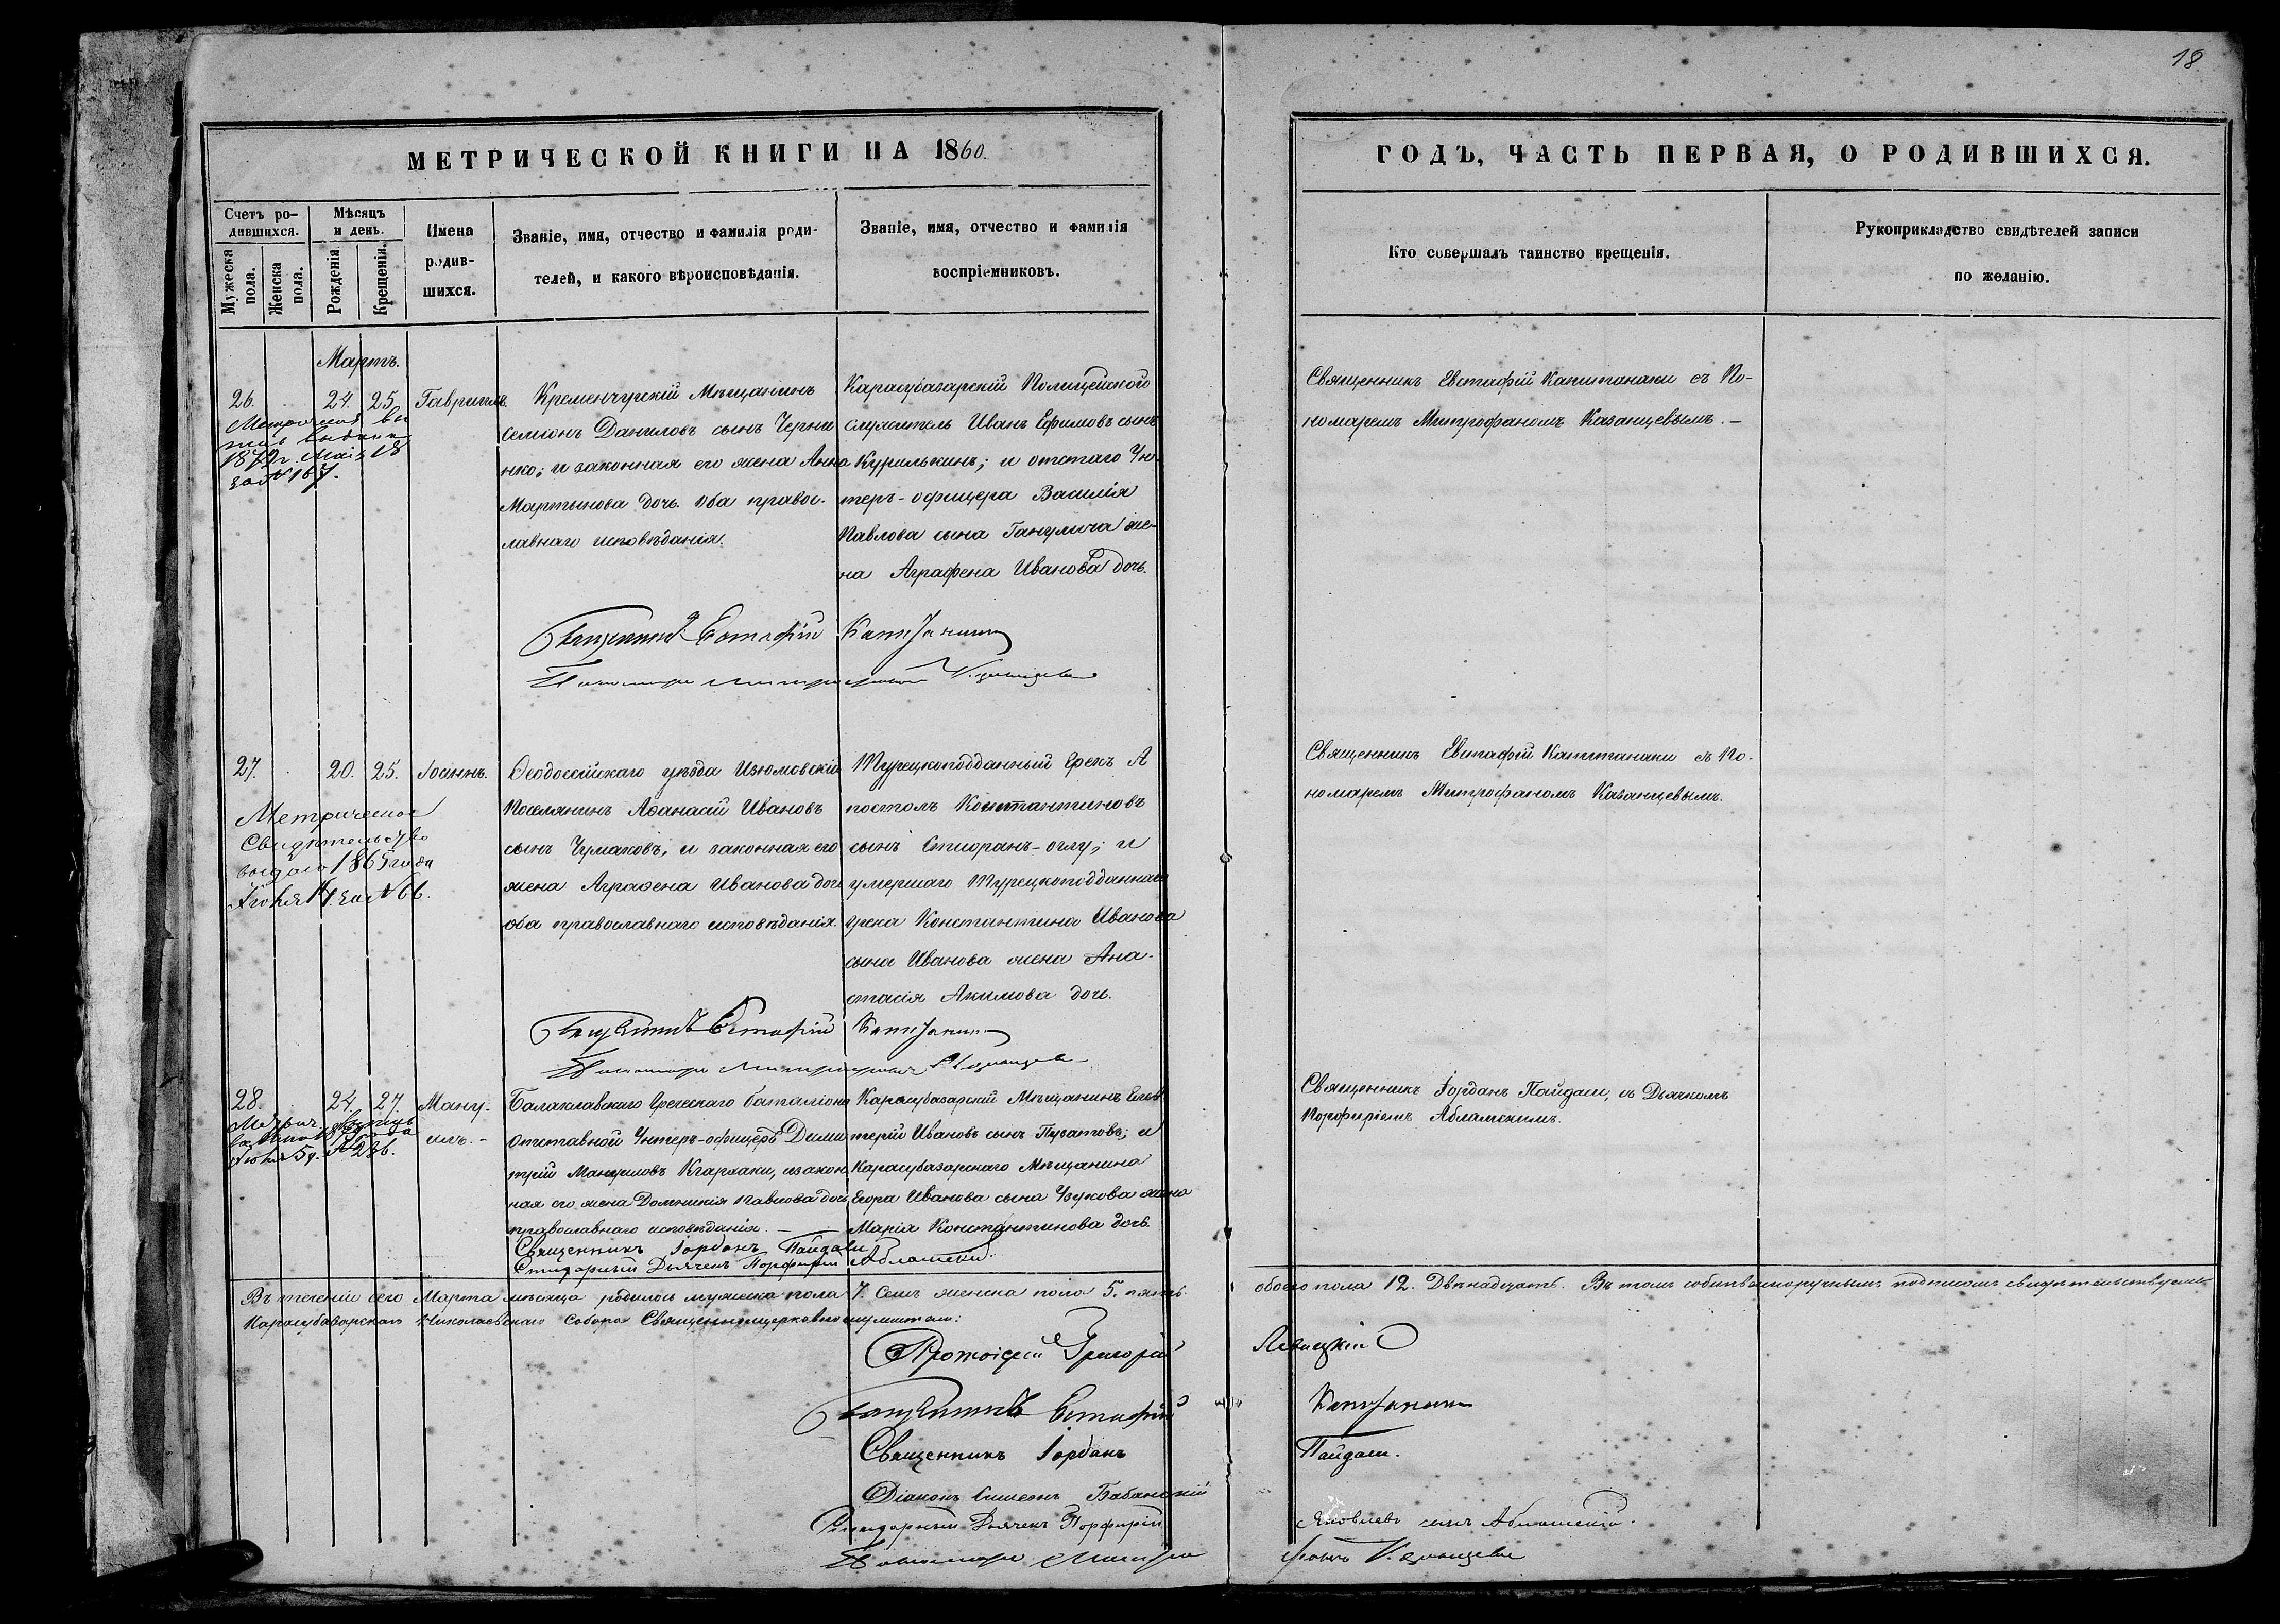 18
МЕТРИЧЕСКОЙ КНИГИ НА 1860.
ГОДЪ, ЧАСТЬ ПЕРВАЯ, О РОДИВШИХСЯ.
Счетъ ро-
дившихся.
Мужеска пола.
Женска пола.
Мѣсяцъ
и день.
Рожденія.
Крещенія.
Имена
родив-
шихся.
Званіе, имя, отчество и фамилія роди-
телей, и какого вѣроисповѣданія.
Званіе, имя, отчество и фамилія
воспріемниковъ.
Кто совершалъ таинство крещенія.
Рукоприкладство свидѣтелей записи
по желанію.
Мартъ.
26. 24. 25. Гавріилъ.
1879 г. Маія 18
за № 167.
Кременчугскій Мѣщанинъ
Семіонъ Даниловъ сынъ Черни
нко; и законная его жена Анна
Мартынова дочь. Оба правос-
лавнаго исповѣданія.
Карасубазарскій Полицейскаго
служитель Иванъ Ефимовъ сынъ
Курилкинъ; и отстаго Ун-
теръ-офицера Василія
Павлова сына Ганулича же-
на Аграфена Иванова дочь.
Священникъ Евстафій Капитанаки съ По-
номаремъ Митрофаномъ Казанцевымъ.—
Священникъ Евстафій Капитанаки
Пономарь Митрофанъ Казанцевъ
27. 20. 25. Іоаннъ.
Метрическое
Свидѣтельство
выдано 1865 года
Іюня 14 за № 66.
Ѳеодосійскаго уѣзда Изюмовскій
Поселянинъ Аѳанасій Ивановъ
сынъ Чумаковъ; и законная его
жена Аграѳена Иванова дочь
оба православнаго исповѣданія.
Турецкоподданный Грекъ А
постолъ Константиновъ
сынъ -оглу; и
умершаго Турецкоподданнаго
грека Константина Иванова
сына Иванова жена Ана-
стасія Акимова дочь.
Священникъ Евстафій Капитанаки съ По-
номаремъ Митрофаномъ Казанцевымъ.
Священникъ Евстафій Капитанаки
Пономарь Митрофанъ Казанцевъ
28. 24. 27.Ману-
илъ.—
Балаклавскаго Греческаго баталіона
отставной Унтеръ-офицеръ Дими
трій Мануиловъ, и закон
ная его жена Домникія Павлова дочь,
православнаго исповѣданія. —
Карасубазарскій Мѣщанинъ Елев
терій Ивановъ сынъ Пузатовъ; и
Карасубазарскаго Мѣщанина
Егора Иванова сына жена
Марія Константинова дочь.
Священникъ Іорданъ Пайдаси, съ Дьячкомъ
Порфиріемъ Абламскимъ.
Священникъ Іорданъ Пайдаси
Стихарный Дьячекъ Порфирій Абламскій.
Въ теченіи сего Марта мѣсяца родилось мужеска пола 7. Семъ женска пола 5. пять. обоего пола 12. Двѣнадцать. Въ томъ собственноручнымъ подписомъ свидѣтельствуемъ
Карасубазарскаго Николаевскаго Собора Священноцерковнослужители:
Протоіерей Григорій Левицкій
Священникъ Евстафій Капитанаки
Священникъ Іорданъ Пайдаси.
Діаконъ Симеонъ Бабанскій
Стихарный Дьячекъ Порфирій Яковлевъ сынъ Абламскій.
Пономарь Митрофанъ Казанцевъ